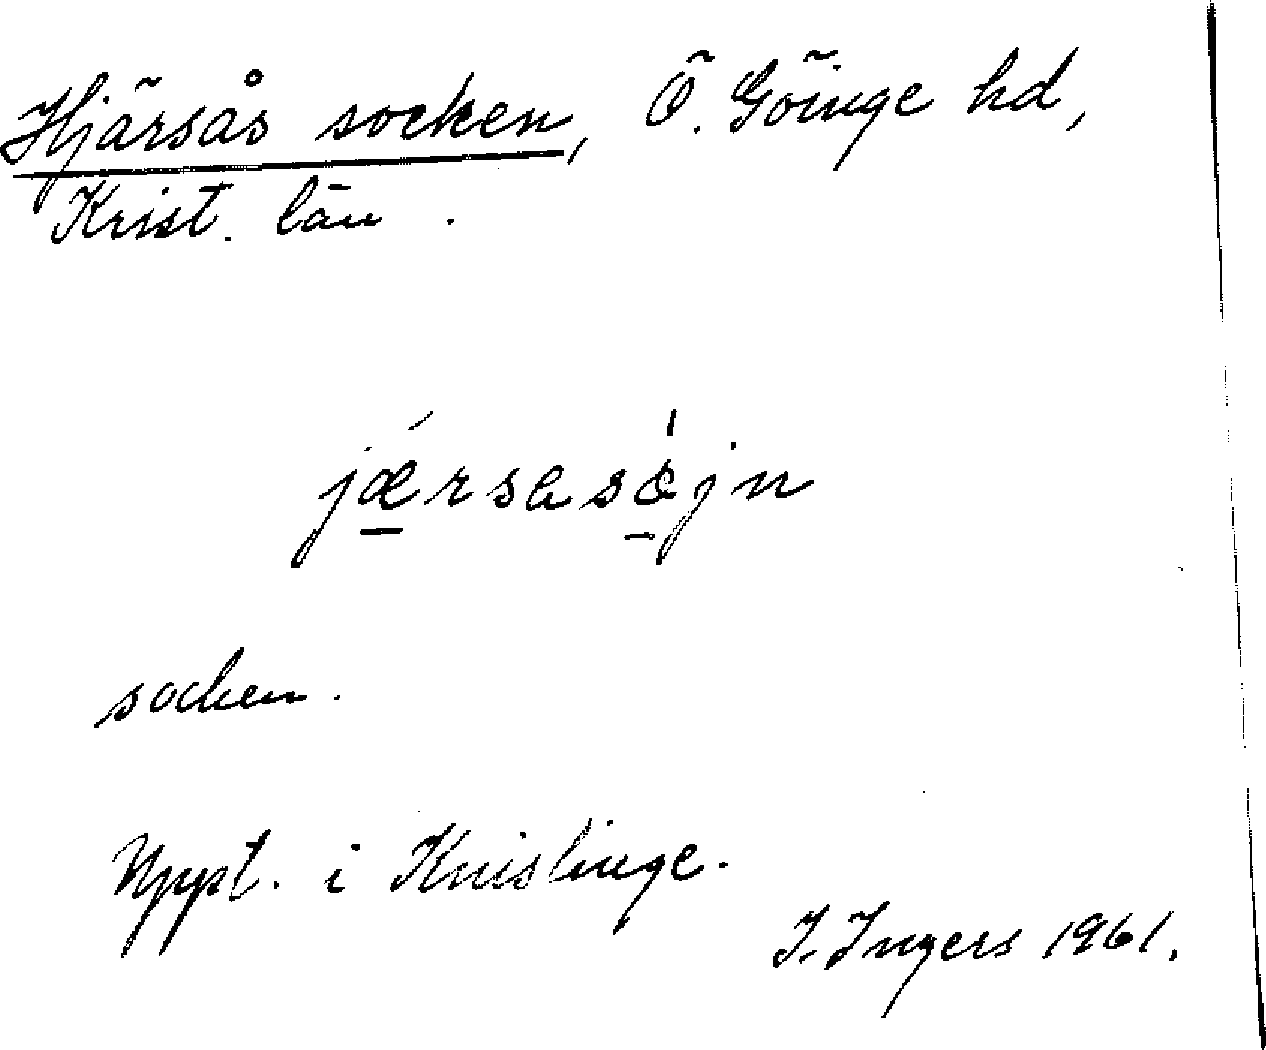 Hjärsås socken, Ö. Göinge hd,
Krist. län.
jǽrsasöjn
socken.
Uppt. i Knislinge.
I. Ingers 1961.